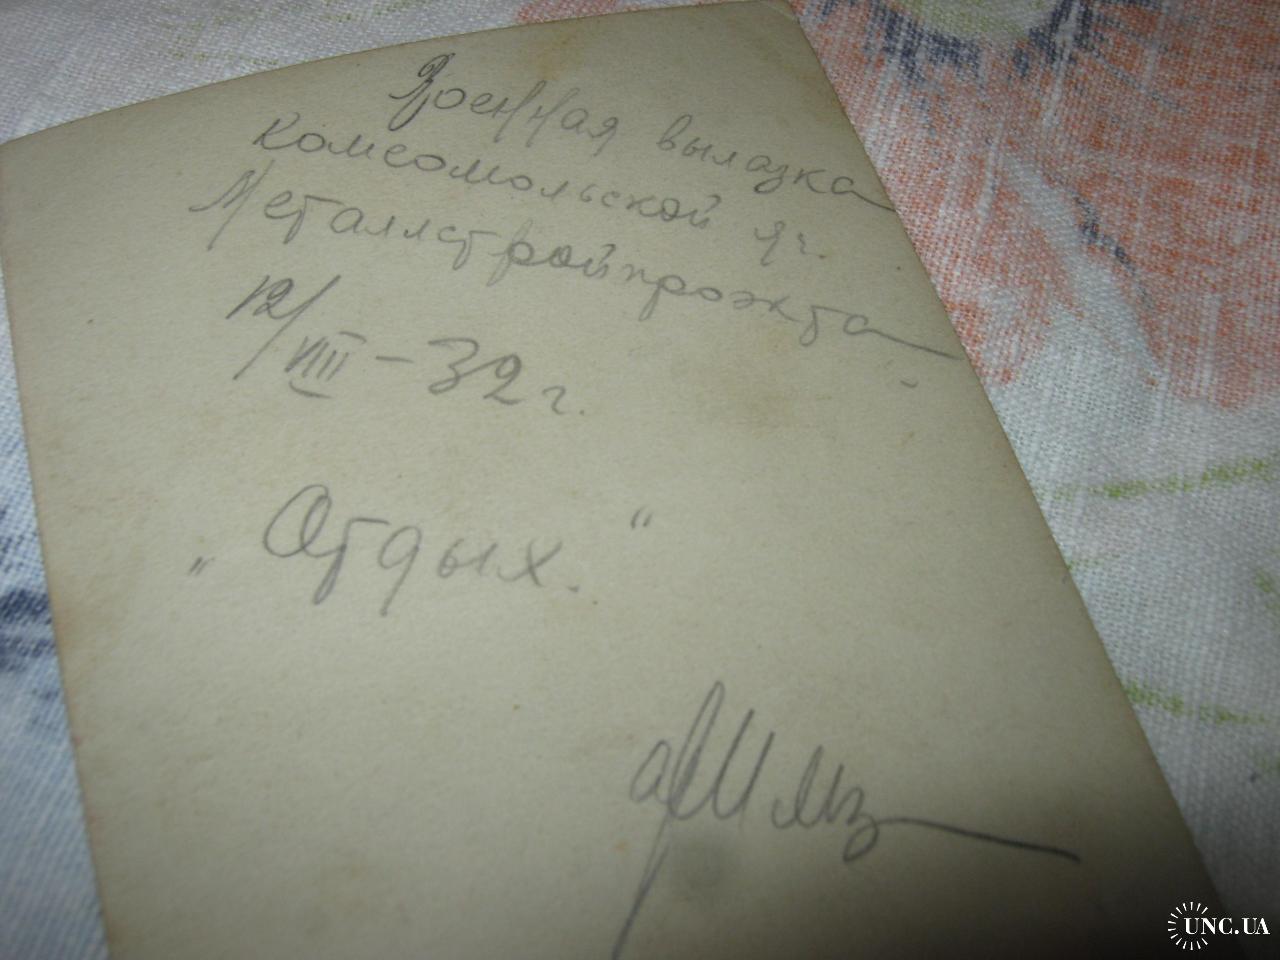 Военная вылазка
комсомольской яч.
Металлстройпроэкта
12/VIII – 32 г.
„Отдых.“
UNC.UA